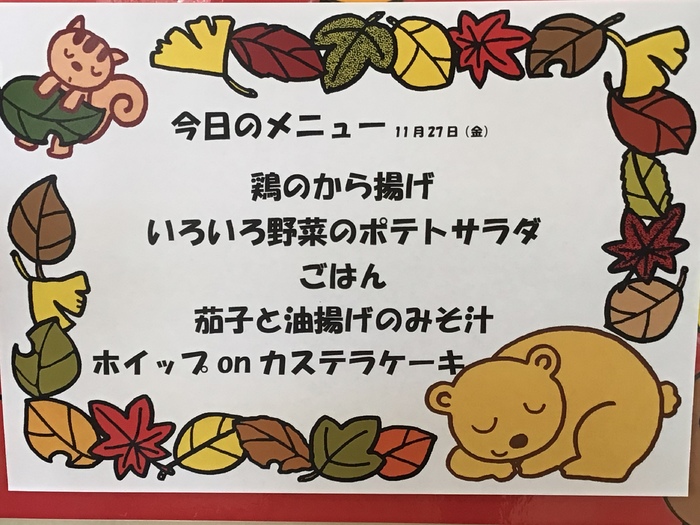 今日のメニュー 11月27日(金)
鶏のから揚げ
いろいろ野菜のポテトサラダ
ごはん
茄子と油揚げのみそ汁
ホイップonカステラケーキ